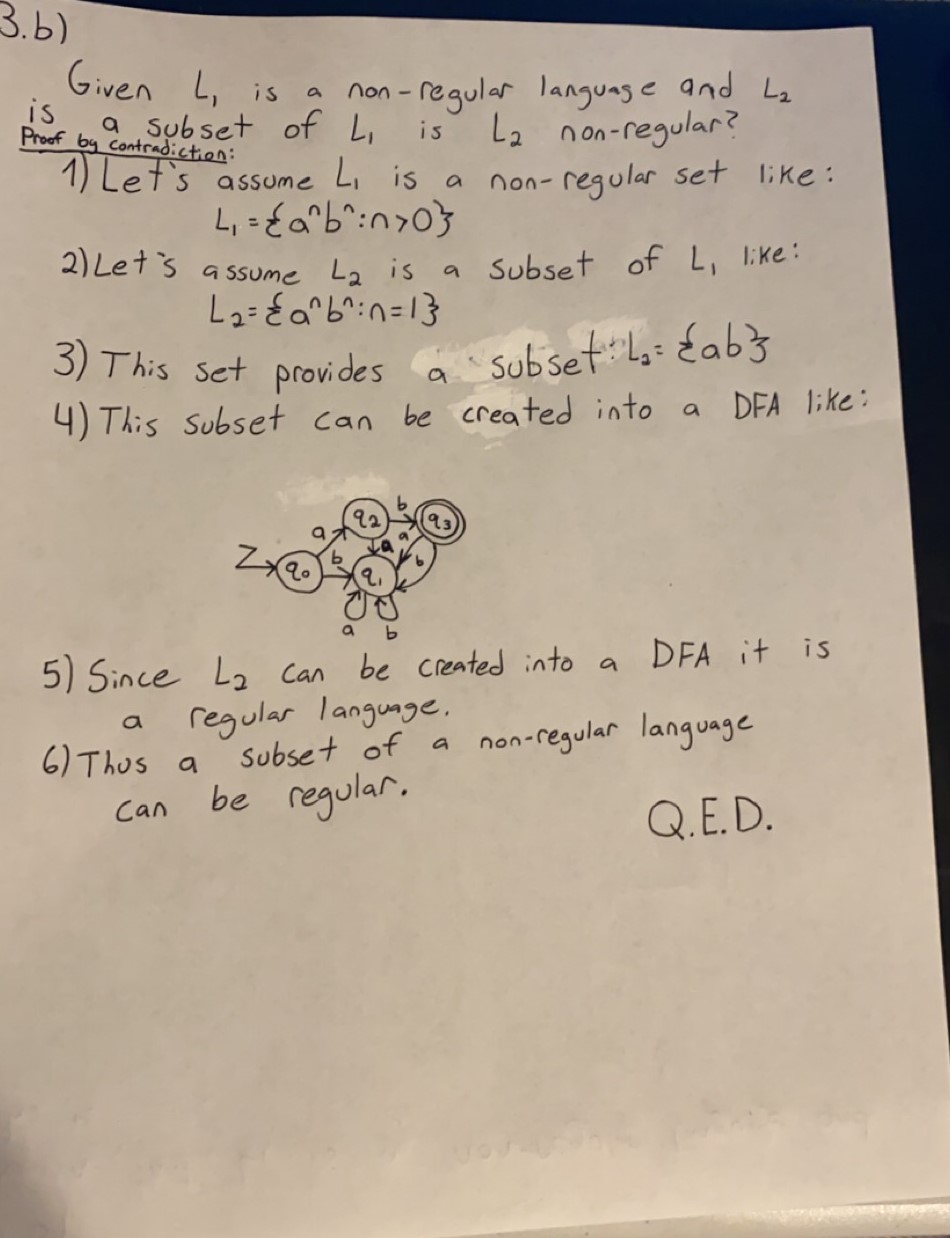 3.b)
Given L₁ is a non-regular language and L₂
is a subset of L₁ is L₂ non-regular?
Proof by contradiction:
1) Let's assume L₁ is a non-regular set like:
L₁={aⁿbⁿ:n>0}
2) Let's assume L₂ is a subset of L₁ like:
L₂={aⁿbⁿ:n=1}
3) This set provides a subset: L₂={ab}
4) This subset can be created into a DFA like:
q₂ b q₃
a a a
Z q₀ b q₁ b
a b
5) Since L₂ can be created into a DFA it is
a regular language.
6) Thus a subset of a non-regular language
can be regular.
Q.E.D.